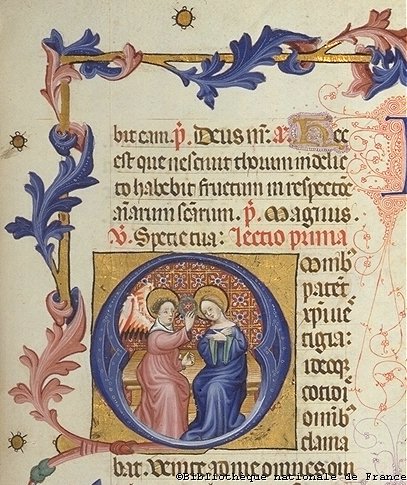 bit eam. p̄. Deus nr̄. a Hec
est que nescivit thorum in delic
to habebit fructum in respectōe
aīarum sc̄arum. p̄. Magnus.
V̄. Specie tua: Lectio prima
Omnib
patet
xpī ve
tigia:
ideoqꝫ
cotidi
omnib
clama
bat. Venite ad me omnes qui
©Bibliothèque nationale de France